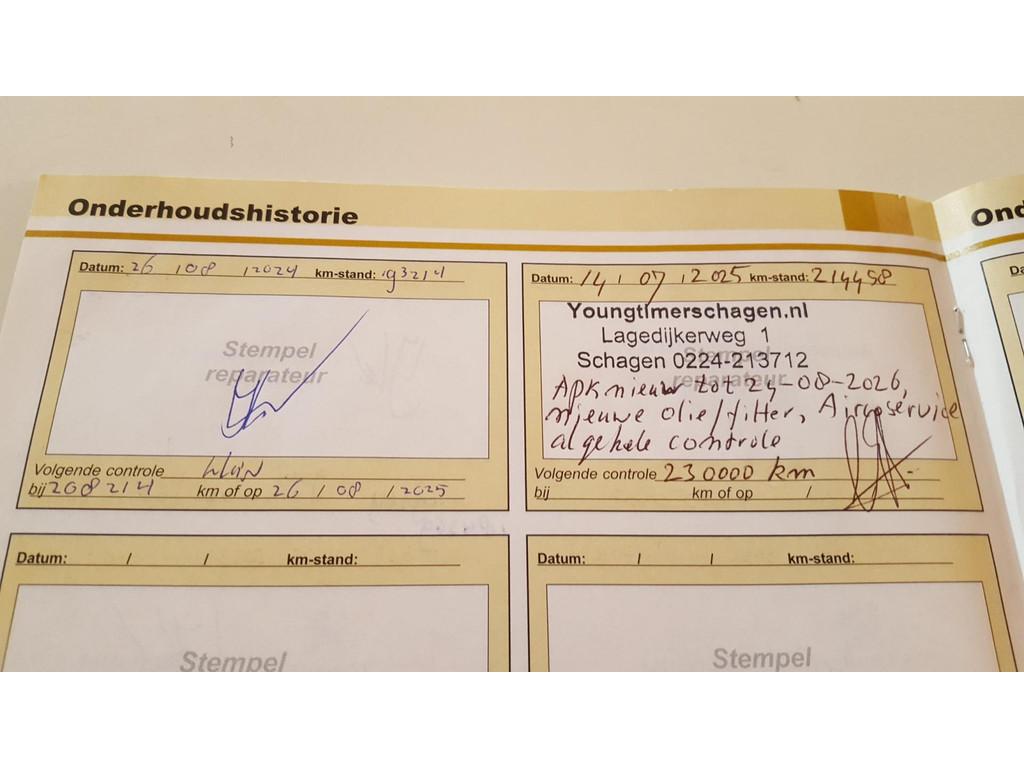 Onderhoudshistorie
Datum: 26 / 08 / 2024 km-stand: 193214
Stempel
reparateur
Volgende controle
bij 208214 km of op 26 / 08 / 2025
Datum: 14 / 07 / 2025 km-stand: 214458
Youngtimerschagen.nl
Lagedijkerweg 1
Schagen 0224-213712
Stempel
reparateur
APK nieuw tot 24-08-2026,
nieuwe olie/filter, Aircoservice
algehele controle
Volgende controle 230000 km
bij km of op /
Datum: / / km-stand:
Stempel
Datum: / / km-stand:
Stempel
Ond
Da